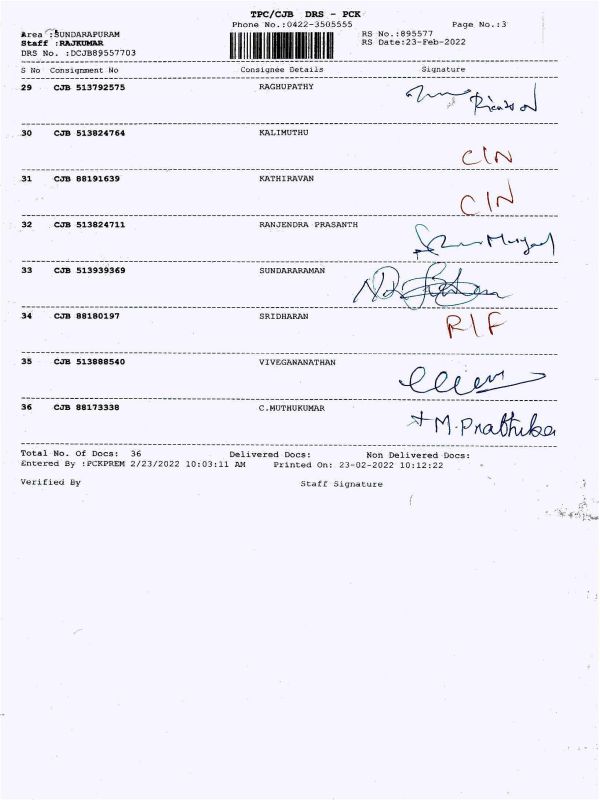 TPC/CJB DRS - PCK
Phone No.:0422-3505555 Page No.:3
Area :SUNDARAPURAM RS No.:895577
Staff :RAJKUMAR RS Date:23-Feb-2022
DRS No. :DCJB89557703
S No Consignment No Consignee Details Signature
29 CJB 513792575 RAGHUPATHY
30 CJB 513824764 KALIMUTHU
CIN
31 CJB 88191639 KATHIRAVAN
CIN
32 CJB 513824711 RANJENDRA PRASANTH
33 CJB 513939369 SUNDARARAMAN
34 CJB 88180197 SRIDHARAN
RIF
35 CJB 513888540 VIVEGANANATHAN
36 CJB 88173338 C.MUTHUKUMAR
M.Prabhika
Total No. Of Docs: 36 Delivered Docs: Non Delivered Docs:
Entered By :PCKPREM 2/23/2022 10:03:11 AM Printed On: 23-02-2022 10:12:22
Verified By Staff Signature